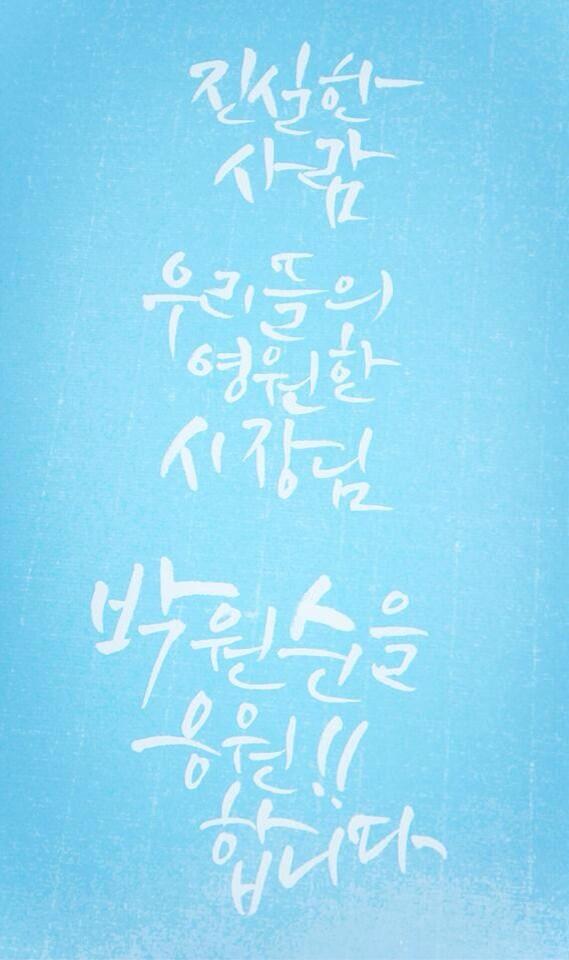 진실한
사람
우리들의
영원한
시장님
박원순을
응원!!
합니다